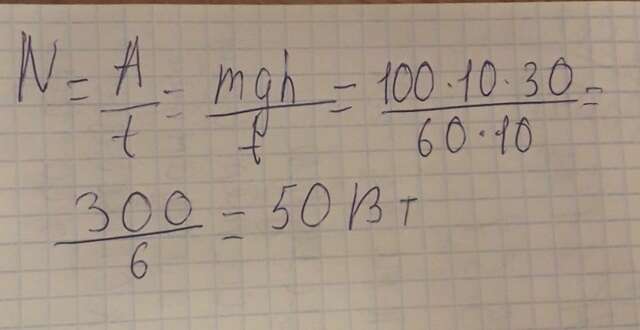 N = A/t = mgh/t = 100·10·30/60·10 =
300/6 = 50 Вт